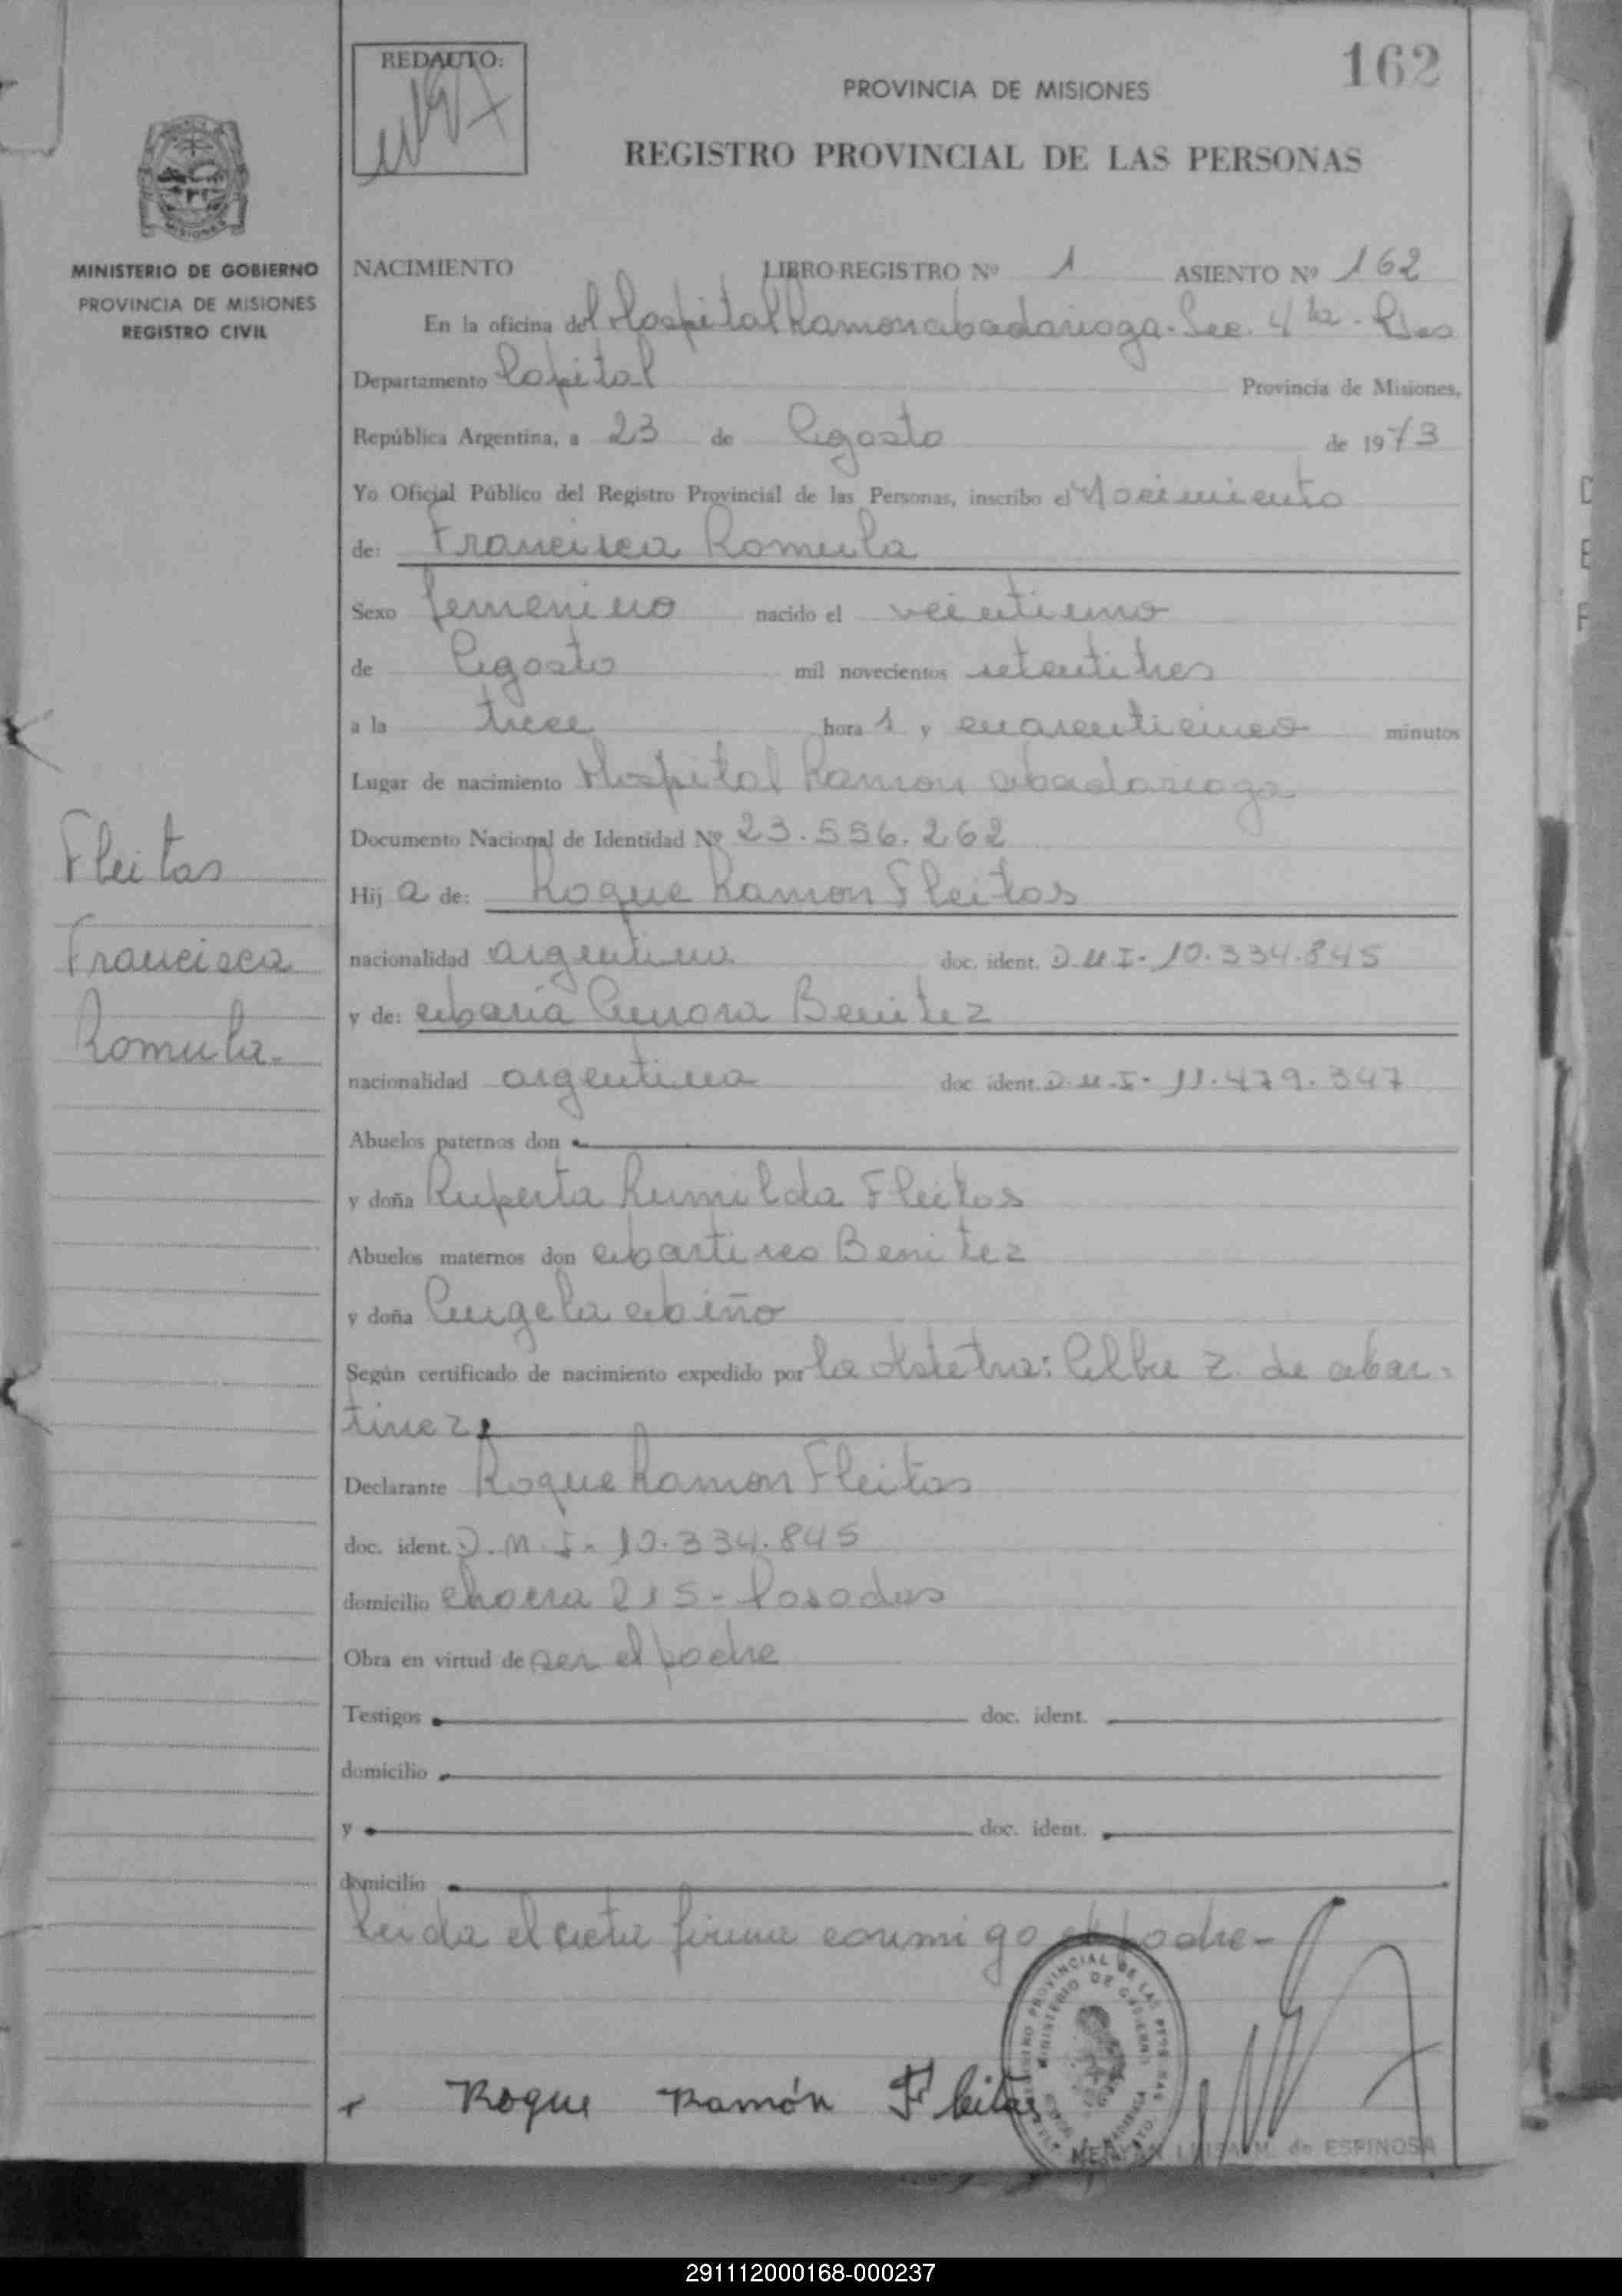 REDACTO:
162
PROVINCIA DE MISIONES
REGISTRO PROVINCIAL DE LAS PERSONAS
MISIONES
MINISTERIO DE GOBIERNO
PROVINCIA DE MISIONES
REGISTRO CIVIL
NACIMIENTO LIBRO-REGISTRO Nº 1 ASIENTO Nº 162
En la oficina del Hospital Ramon Madariaga - Sec. 4ta - Pdas
Departamento Capital Provincia de Misiones,
República Argentina, a 23 de Agosto de 1973
Yo Oficial Público del Registro Provincial de las Personas, inscribo el Nacimiento
de: Francisca Romula
Sexo femenino nacido el veintiuno
de Agosto mil novecientos setentitres
a la trece hora s y cuarenticinco minutos
Lugar de nacimiento Hospital Ramon Madariaga
Documento Nacional de Identidad Nº 23.556.262
Fleitas
Francisca
Romula.
Hij a de: Roque Ramon Fleitas
nacionalidad argentino doc. ident. D.N.I- 10.334.845
y de: Maria Aurora Benitez
nacionalidad argentina doc ident. D.N.I- 11.479.347
Abuelos paternos don
y doña Ruperta Rumilda Fleitas
Abuelos maternos don Martires Benitez
y doña Angela Miño
Según certificado de nacimiento expedido por la obstetra: Alba Z. de Mar-
tinez
Declarante Roque Ramon Fleitas
doc. ident. D.N.I- 10.334.845
domicilio chacra 215 - Posadas
Obra en virtud de ser el padre
Testigos doc. ident.
domicilio
y doc. ident.
domicilio
Leida el acta firma conmigo el padre-
Roque Ramón Fleitas
LUISA M. de ESPINOSA
291112000168-000237